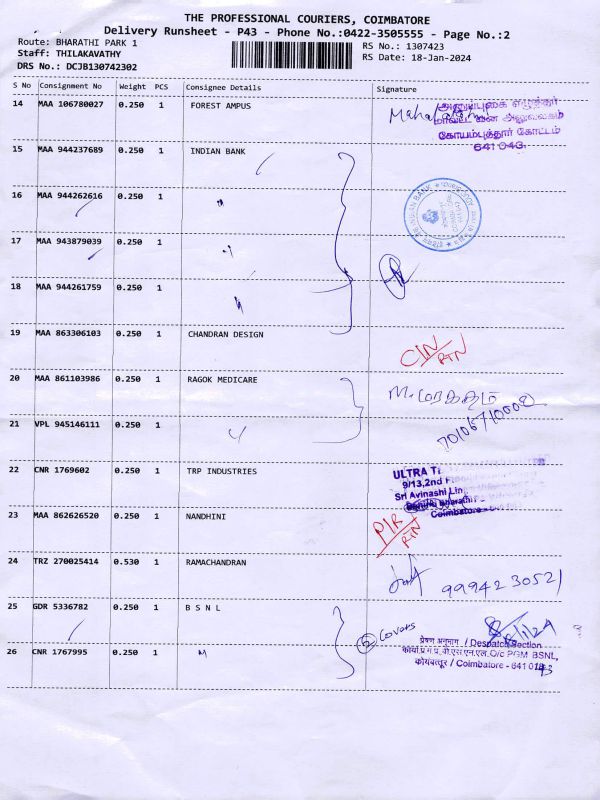 THE PROFESSIONAL COURIERS, COIMBATORE
Delivery Runsheet - P43 - Phone No.:0422-3505555 - Page No.:2
Route: BHARATHI PARK 1
RS No.: 1307423
Staff: THILAKAVATHY
RS Date: 18-Jan-2024
DRS No.: DCJB130742302
S No Consignment No Weight PCS Consignee Details Signature
14 MAA 106780027 0.250 1 FOREST AMPUS
அனுப்புகை எழுத்தர்
மாவட்ட வன அலுவலகம்
கோயம்புத்தூர் கோட்டம்
641 043.
15 MAA 944237689 0.250 1 INDIAN BANK
16 MAA 944262616 0.250 1 "
INDIAN BANK
17 MAA 943879039 0.250 1 "
18 MAA 944261759 0.250 1 "
19 MAA 863306103 0.250 1 CHANDRAN DESIGN
CIN/RTN
20 MAA 861103986 0.250 1 RAGOK MEDICARE
21 VPL 945146111 0.250 1 "
22 CNR 1769602 0.250 1 TRP INDUSTRIES
ULTRA
9/13,2nd
Sri Avinashi
Coimbatore
23 MAA 862626520 0.250 1 NANDHINI
P/R RTN
24 TRZ 270025414 0.530 1 RAMACHANDRAN
9994230521
25 GDR 5336782 0.250 1 B S N L
6 Covers
प्रेषण अनुभाग / Despatch Section
O/c PGM BSNL,
कोयंबत्तूर / Coimbatore - 641 043
26 CNR 1767995 0.250 1 "